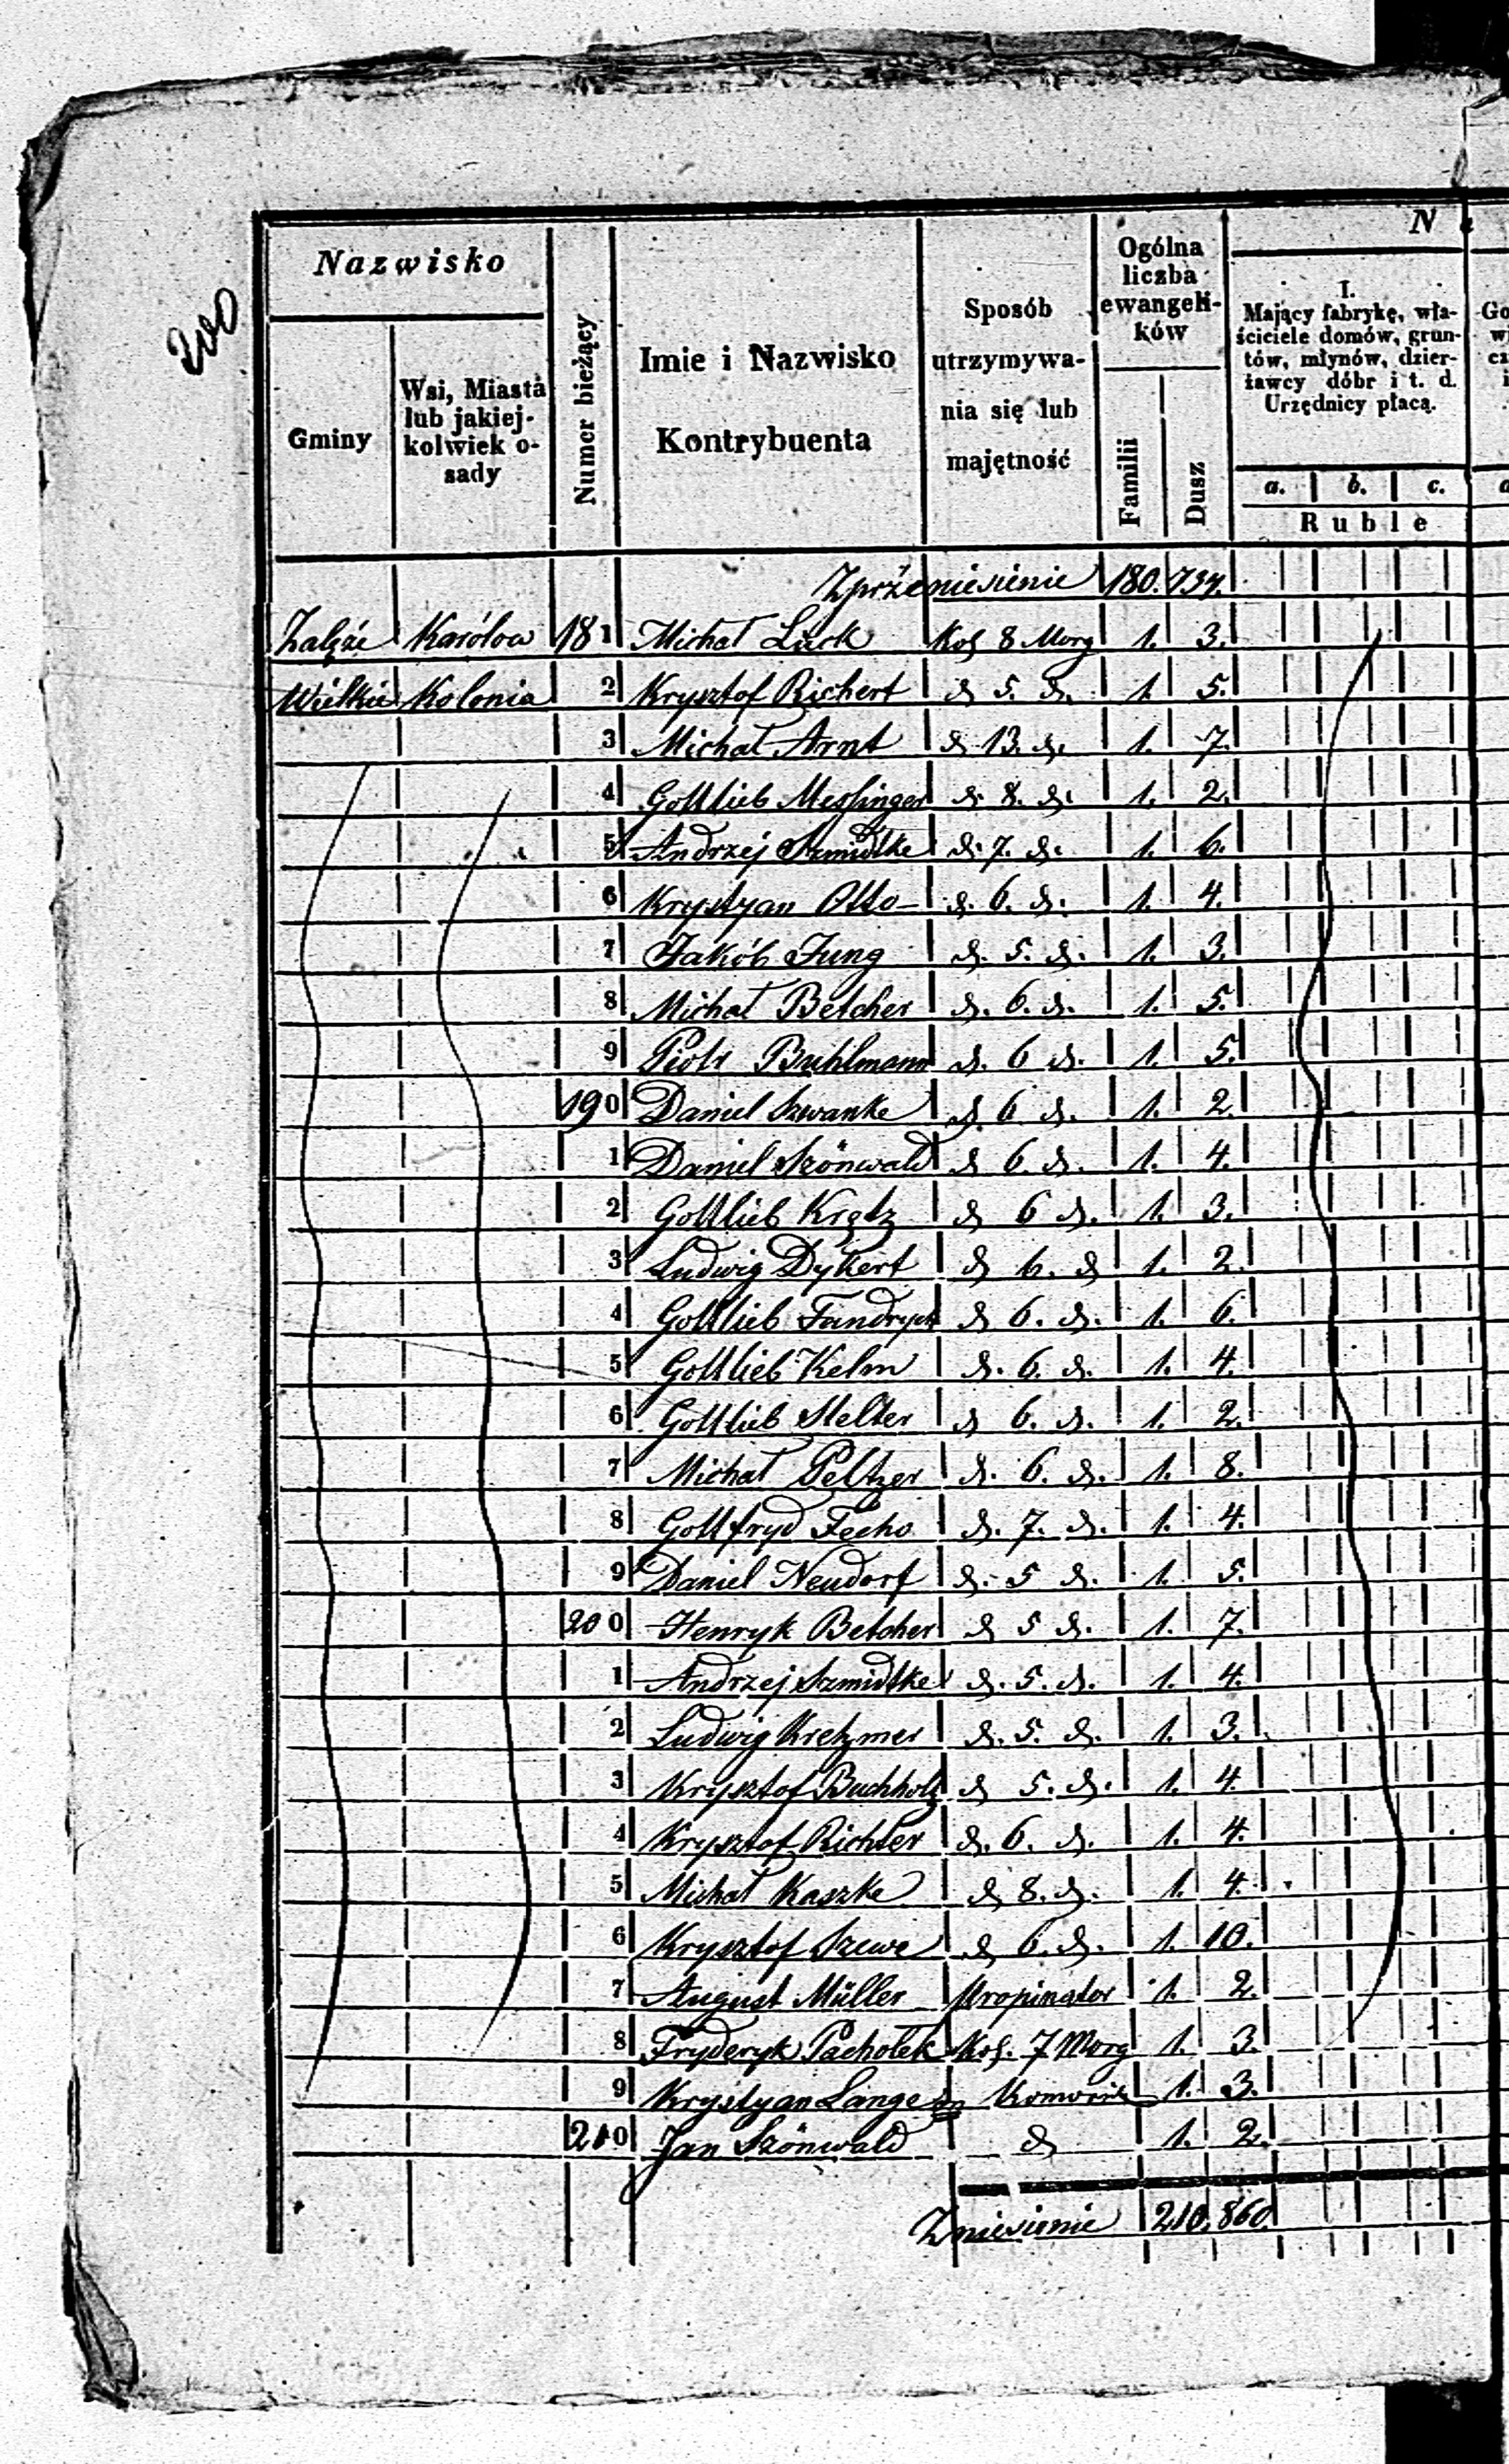 200
Nazwisko
Gminy
Wsi, Miasta lub jakiej-kolwiek o-sady
Numer bieżący
Imie i Nazwisko Kontrybuenta
Sposób utrzymywa-nia się lub majętność
Ogólna liczba ewangeli-ków
Familii
Dusz
N
I. Mający fabrykę, wła-ściciele domów, grun-tów, młynów, dzier-żawcy dóbr i t. d. Urzędnicy płacą.
a. b. c.
Ruble
Zprzeniesienie 180. 734.
Załęże Karólow 181 Michał Lück Kol 8 Morg 1. 3.
Wielkie Kolonia 2 Krysztof Richert d 5. d. 1. 5.
3 Michał Arnt d 13. d. 1. 7.
4 Gottlieb Messinger d. 8. d. 1. 2.
5 Andrzej Szmidtke d. 7. d. 1. 6.
6 Krystyan Otto d. 6. d. 1. 4.
7 Jakób Jung d. 5. d. 1. 3.
8 Michał Betcher d. 6. d. 1. 5.
9 Piotr Buhlmann d. 6 d. 1. 5.
190 Daniel Szwanke d. 6 d. 1. 2.
1 Daniel Szönwald d 6. d. 1. 4.
2 Gottlieb Krętz d 6 d. 1. 3.
3 Ludwig Dykert d 6. d 1. 2.
4 Gottlieb Fandrych d 6. d. 1. 6.
5 Gottlieb Kelm d. 6. d. 1. 4.
6 Gottlieb Stelter d 6. d. 1. 2.
7 Michał Peltzer d. 6. d. 1. 8.
8 Gottfryd Fecho d. 7. d. 1. 4.
9 Daniel Neudorf d. 5 d. 1. 5.
200 Henryk Betcher d 5 d. 1. 7.
1 Andrzej Szmidtke d. 5. d. 1. 4.
2 Ludwig Kretzmer d. 5. d. 1. 3.
3 Krysztof Buchholtz d 5. d. 1. 4.
4 Krysztof Richter d. 6. d. 1. 4.
5 Michał Kaszke d 8. d. 1. 4.
6 Krysztof Szewe d 6. d. 1. 10.
7 August Müller Propinator 1. 2.
8 Fryderyk Pachołek Kol. 7 Morg 1. 3.
9 Krystyan Lange Komornik 1. 3.
210 Jan Szönwald d 1. 2.
Zniesienie 210. 860.